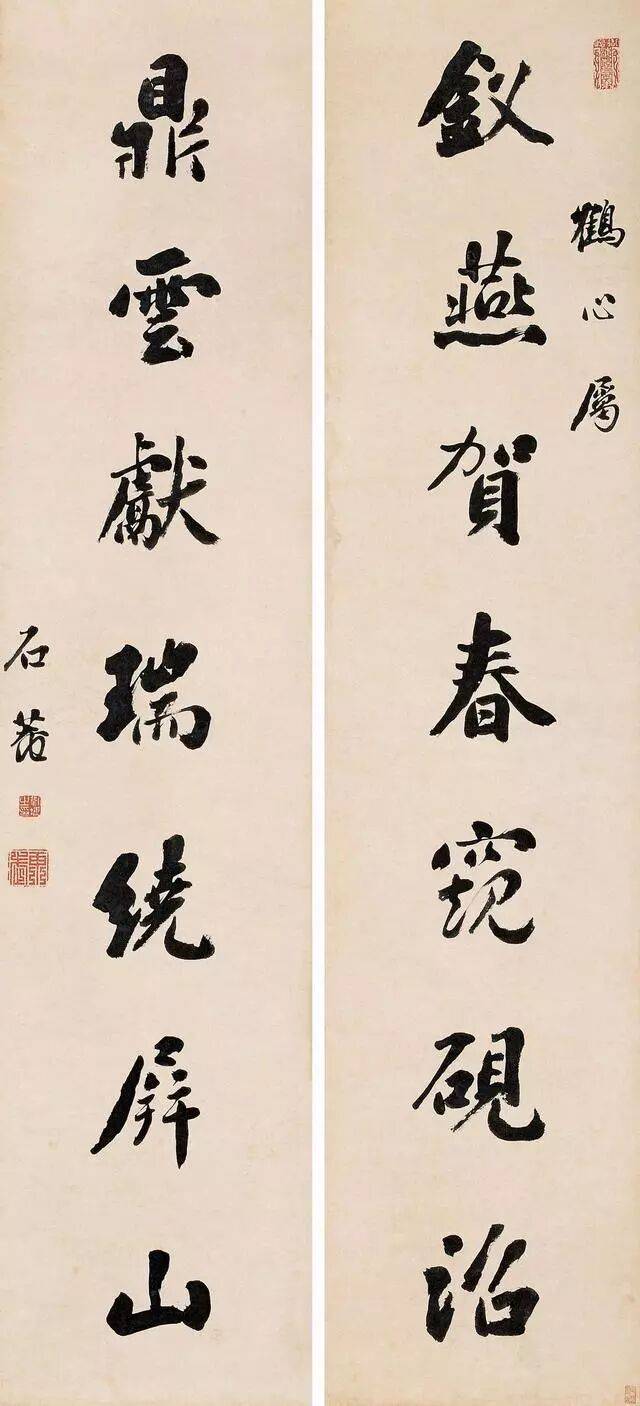 鶴心屬
釵燕賀春窺硯沼
鼎雲獻瑞繞屏山
石菴